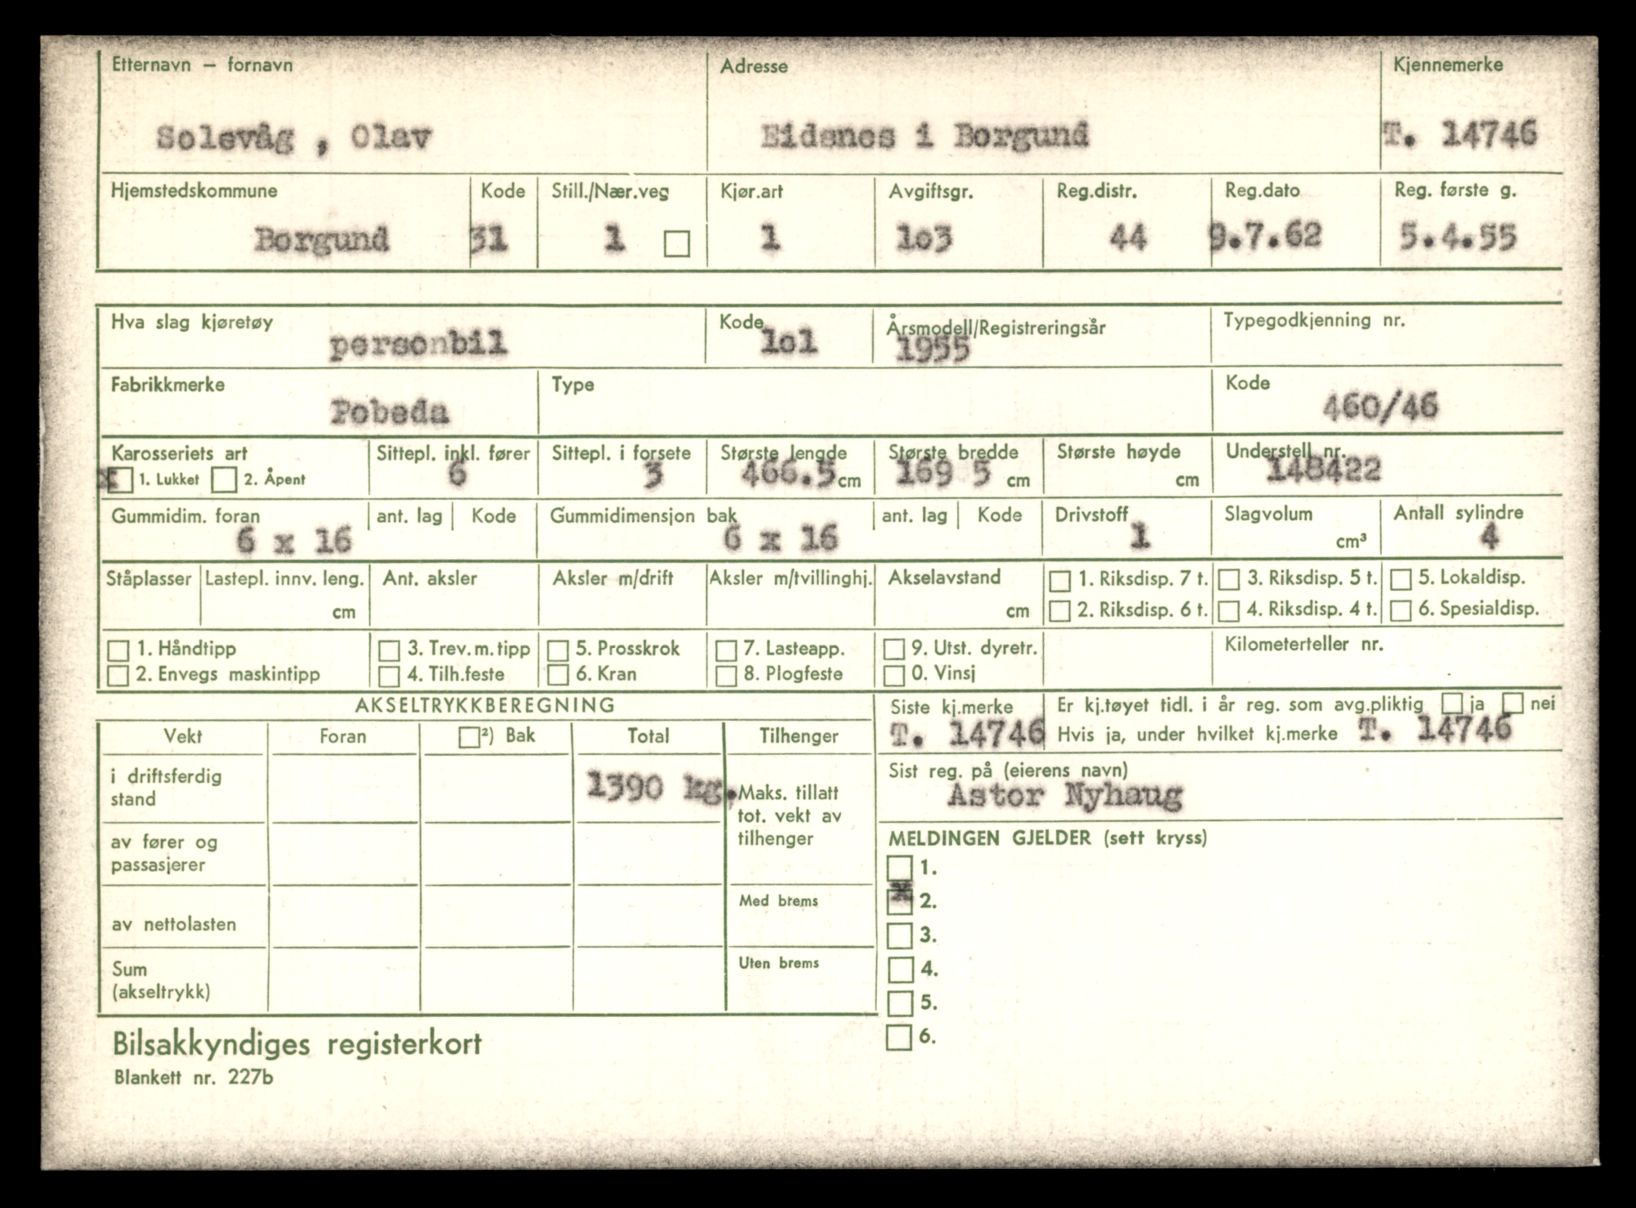 Etternavn – fornavn Adresse Kjennemerke
Solevåg , Olav Eidsnes i Borgund T. 14746
Hjemstedskommune Kode Still./Nær.veg Kjør.art Avgiftsgr. Reg.distr. Reg.dato Reg. første g.
Borgund 31 1 1 1o3 44 9.7.62 5.4.55
Hva slag kjøretøy Kode Årsmodell/Registreringsår Typegodkjenning nr.
personbil 1o1 1955
Fabrikkmerke Type Kode
Pobeda 460/46
Karosseriets art Sittepl. inkl. fører Sittepl. i forsete Største lengde Største bredde Største høyde Understell nr.
x 1. Lukket 2. Åpent 6 3 466.5 cm 169 5 cm cm 148422
Gummidim. foran ant. lag Kode Gummidimensjon bak ant. lag Kode Drivstoff Slagvolum Antall sylindre
6 x 16 6 x 16 1 cm³ 4
Ståplasser Lastepl. innv. leng. Ant. aksler Aksler m/drift Aksler m/tvillinghj. Akselavstand 1. Riksdisp. 7 t. 3. Riksdisp. 5 t. 5. Lokaldisp.
cm cm 2. Riksdisp. 6 t. 4. Riksdisp. 4 t. 6. Spesialdisp.
1. Håndtipp 3. Trev. m. tipp 5. Prosskrok 7. Lasteapp. 9. Utst. dyretr. Kilometerteller nr.
2. Envegs maskintipp 4. Tilh.feste 6. Kran 8. Plogfeste 0. Vinsj
AKSELTRYKKBEREGNING
Siste kj.merke Er kj.tøyet tidl. i år reg. som avg.pliktig ja nei
T. 14746 Hvis ja, under hvilket kj.merke T. 14746
Vekt Foran ²) Bak Total Tilhenger
Sist reg. på (eierens navn)
Astor Nyhaug
i driftsferdig
stand
1390 kg.
Maks. tillatt
tot. vekt av
tilhenger
av fører og
passasjerer
Med brems
av nettolasten
Uten brems
Sum
(akseltrykk)
MELDINGEN GJELDER (sett kryss)
1.
x 2.
3.
4.
5.
6.
Bilsakkyndiges registerkort
Blankett nr. 227b